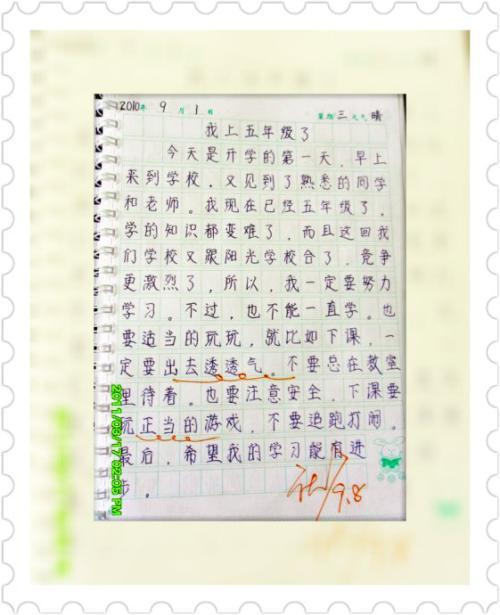 2010年 9月 1日 星期三 天气 晴
我上五年级了
今天是开学的第一天，早上
来到学校，又见到了熟悉的同学
和老师。我现在已经五年级了，
学的知识都变难了，而且这回我
们学校又跟阳光学校合了，竞争
更激烈了，所以，我一定要努力
学习。不过，也不能一直学。也
要适当的玩玩，就比如下课，一
定要出去透透气。不要总在教室
里待着。也要注意安全，下课要
玩正当的游戏，不要追跑打闹。
最后，希望我的学习能有进
步。
9.8
2011/03/17 02:05 PM